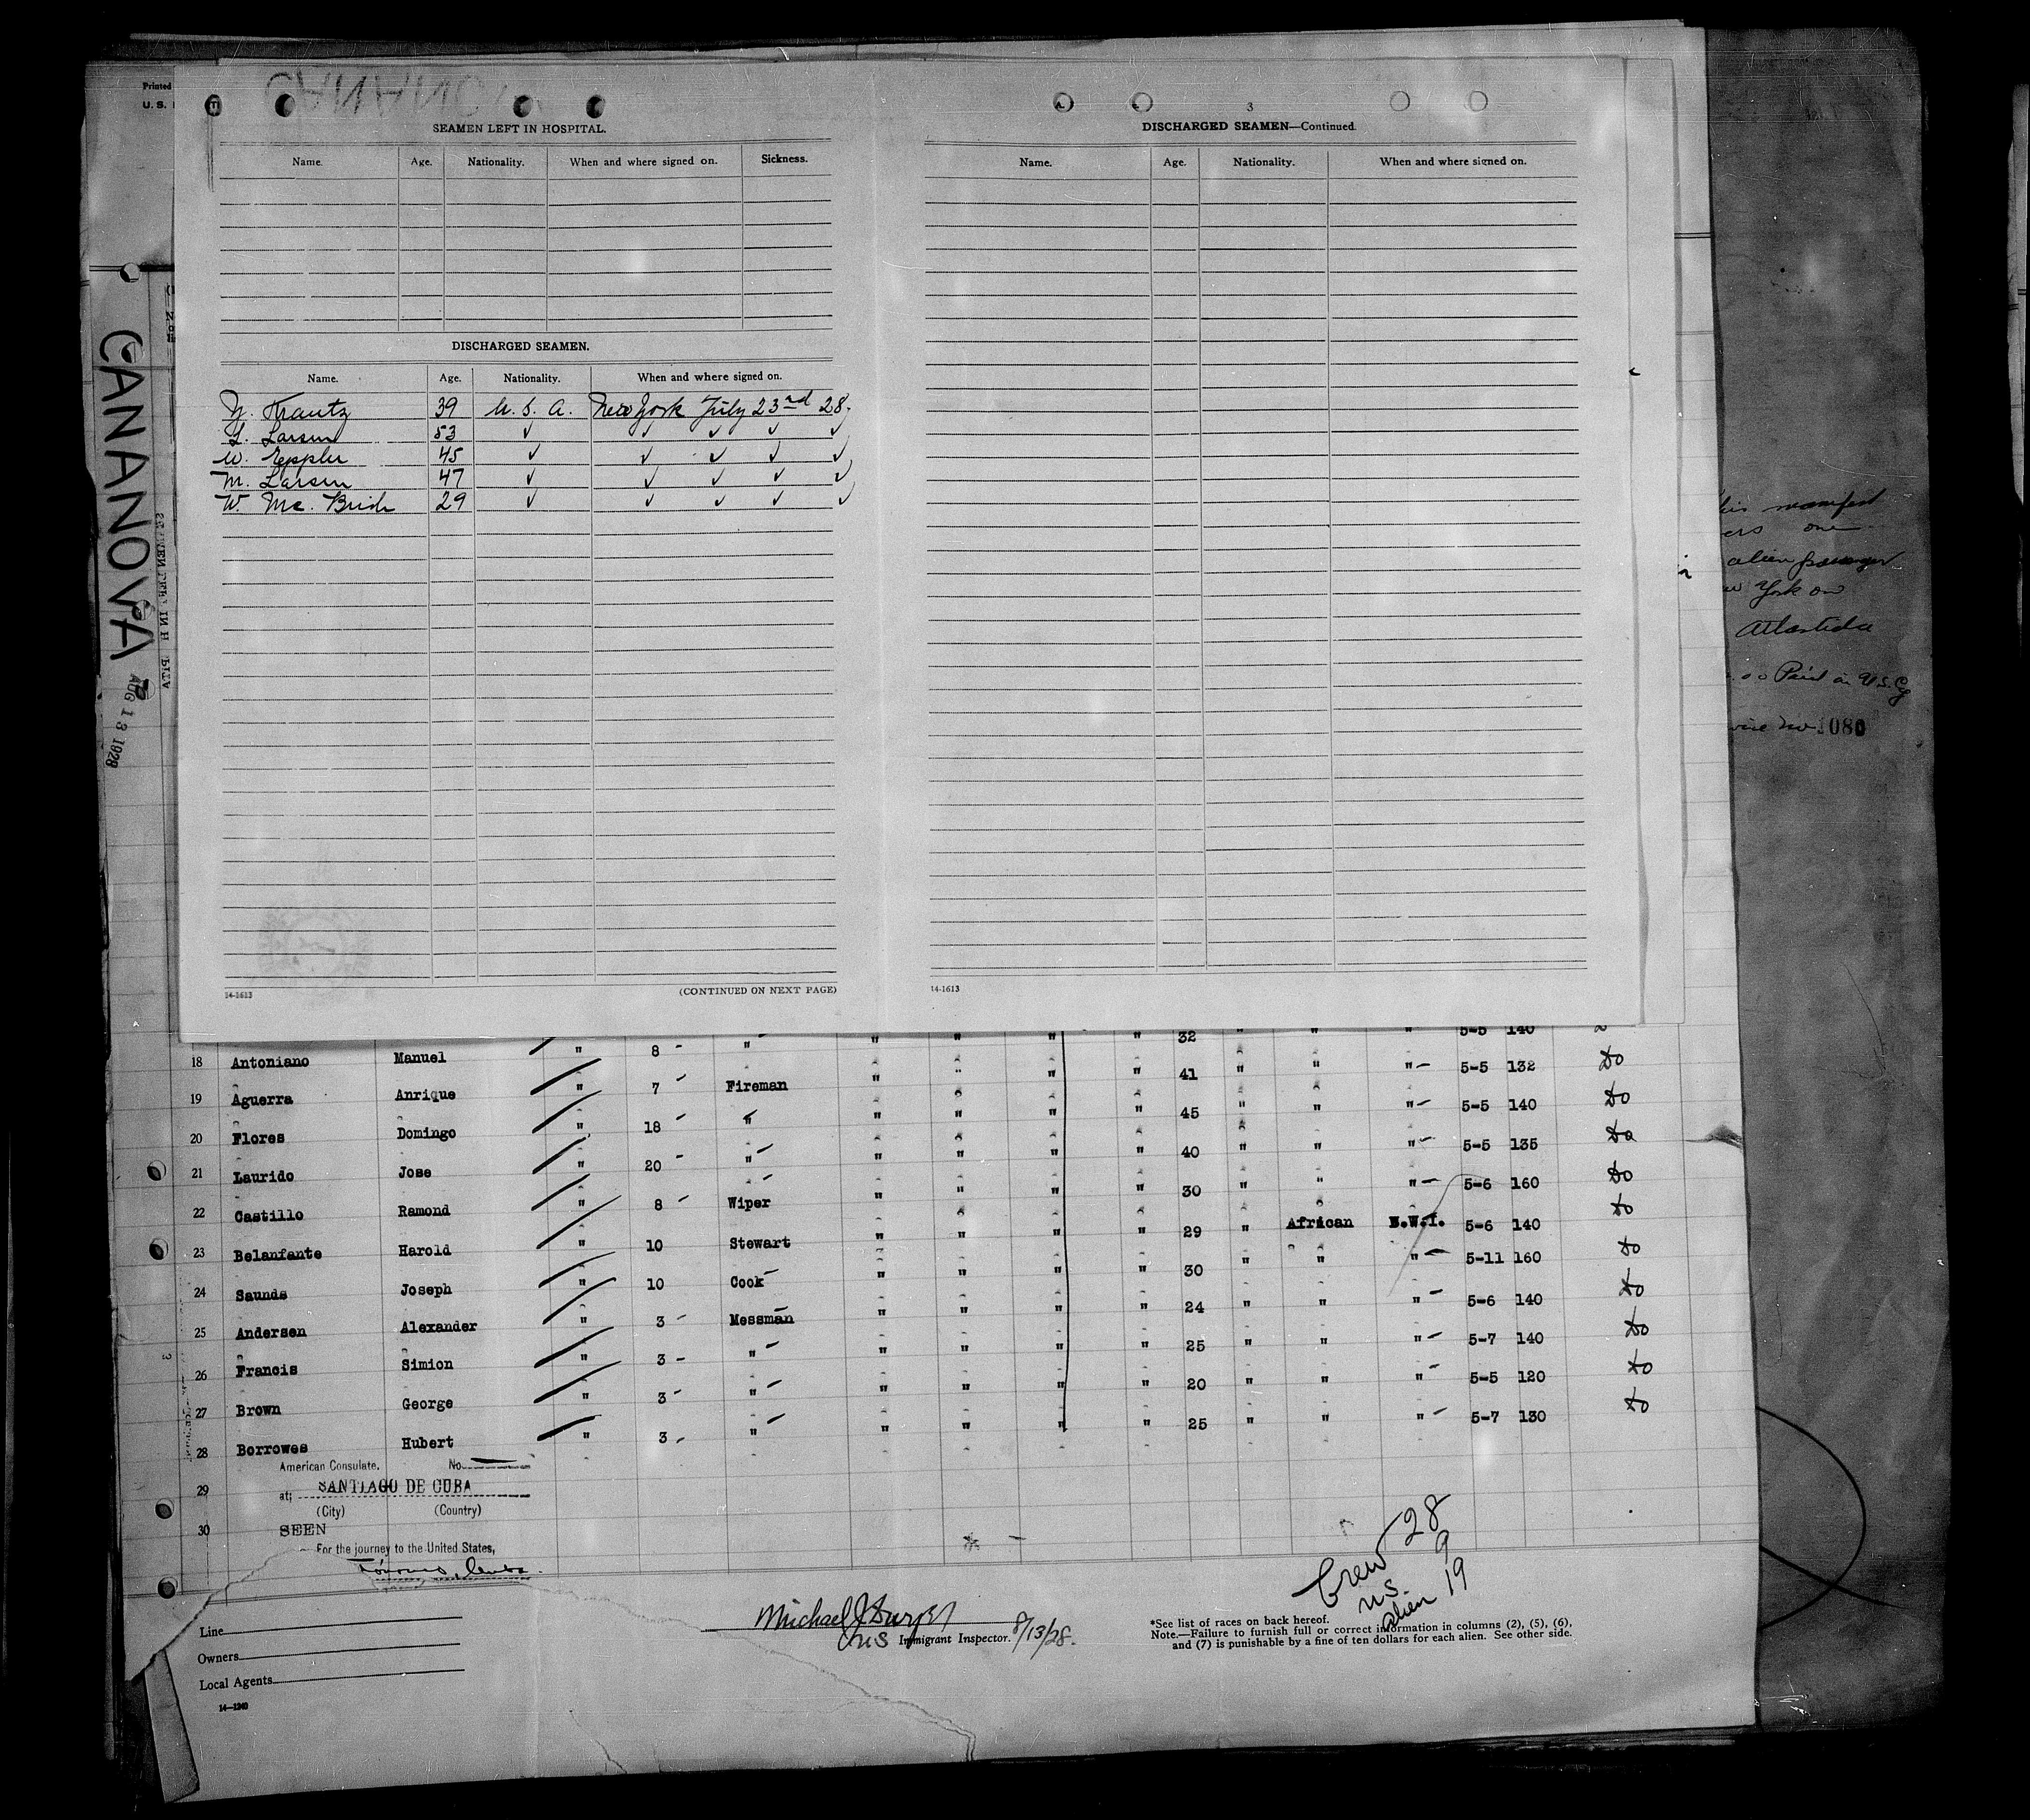 Printed
U. S.
3
SEAMEN LEFT IN HOSPITAL.
Name. Age. Nationality. When and where signed on. Sickness.
DISCHARGED SEAMEN.
Name. Age. Nationality. When and where signed on.
Krautz 39 U. S. A. New York July 23rd 28.
L. Larsen 53 ✓ ✓ ✓ ✓ ✓
W. Eppler 45 ✓ ✓ ✓ ✓ ✓
M. Larsen 47 ✓ ✓ ✓ ✓ ✓
W. Mc. Bride 29 ✓ ✓ ✓ ✓ ✓
14-1613 (CONTINUED ON NEXT PAGE)
DISCHARGED SEAMEN—Continued.
Name. Age. Nationality. When and where signed on.
14-1613
CANANOVA
AUG 13 1928
his manifest
ers one
alien passenger
York on
Atlantida
Paid in U.S.
no 1080
" 8 " " " " " 32 " " " 5-5 140
18 Antoniano Manuel " 7 Fireman " " " " 41 " " " 5-5 132 Do
19 Aguerra Anrique " 18 " " " " " 45 " " " 5-5 140 Do
20 Flores Domingo " 20 " " " " " 40 " " " 5-5 135 Do
21 Laurido Jose " 8 Wiper " " " " 30 " " " 5-6 160 Do
22 Castillo Ramond " 10 Stewart " " " " 29 " African B.W.I. 5-6 140 Do
23 Belanfante Harold " 10 Cook " " " " 30 " " " 5-11 160 Do
24 Saunds Joseph " 3 Messman " " " " 24 " " " 5-6 140 Do
25 Andersen Alexander " 3 " " " " " 25 " " " 5-7 140 Do
26 Francis Simion " 3 " " " " " 20 " " " 5-5 120 Do
27 Brown George " 3 " " " " " 25 " " " 5-7 130 Do
28 Borrowes Hubert
29
30
American Consulate. No.
at; SANTIAGO DE CUBA
(City) (Country)
SEEN
For the journey to the United States,
Cuba.
Crew 28
U.S. 9
alien 19
Line
Owners
Local Agents
14-1240
Michael J
Immigrant Inspector. 8/13/28.
*See list of races on back hereof.
Note.—Failure to furnish full or correct information in columns (2), (5), (6),
and (7) is punishable by a fine of ten dollars for each alien. See other side.